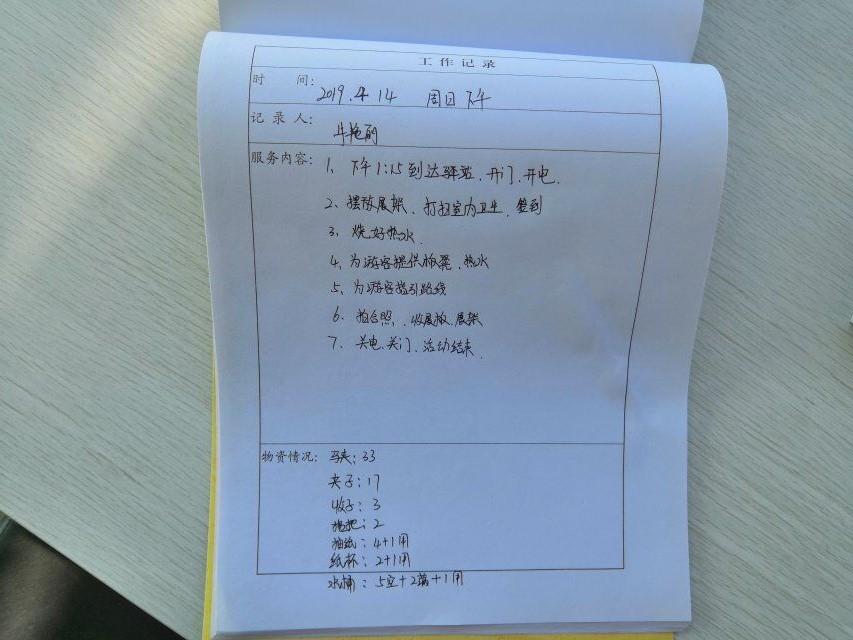 工作记录
时 间: 2019.4.14 周日下午
记录人: 牛艳丽
服务内容: 1、下午1:15到达驿站、开门、开电.
2、摆放展架、打扫室内卫生、签到
3、烧好热水.
4、为游客提供板凳、热水
5、为游客指引路线
6、拍合照、收展板、展架
7、关电、关门、活动结束.
物资情况: 马夹:33
夹子:17
3
拖把:2
抽纸:4+1用
纸杯:2+1用
水桶:5空+2满+1用